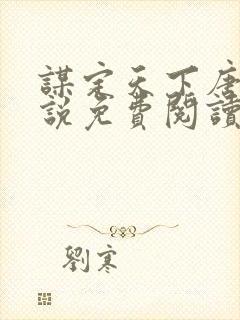 謀定天下唐
說免費閱讀
劉寒